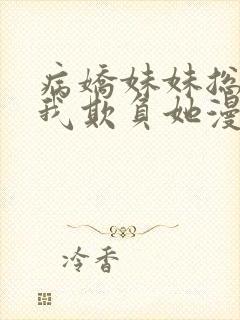 病嬌妹妹總
我欺負她漫
冷香